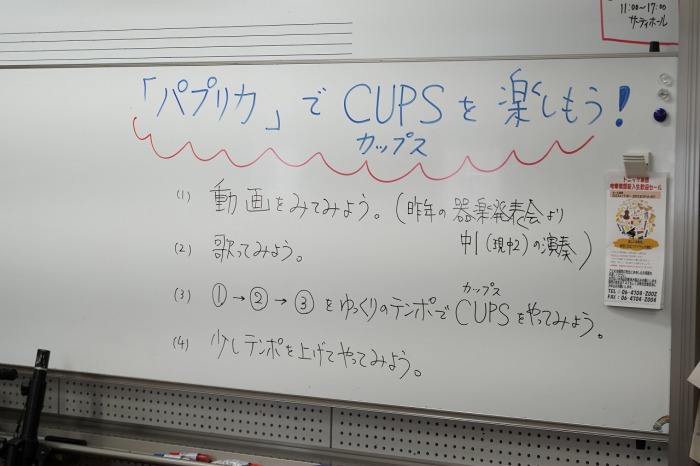 11:00〜17:00
サーティホール
「パプリカ」で CUPS を 楽しもう!
カップス
(1) 動画をみてみよう。(昨年の器楽発表会より
中1(現中2)の演奏)
(2) 歌ってみよう。
(3) ①→②→③をゆっくりのテンポでCUPSをやってみよう。
カップス
(4) 少しテンポを上げてやってみよう。
TEL:06-4308-2002
FAX:06-4304-2004